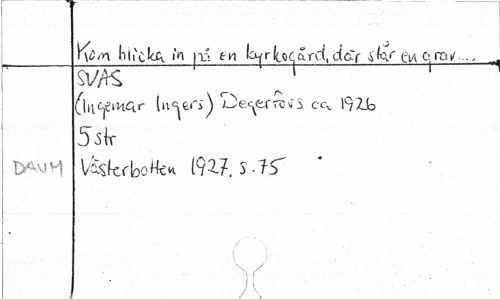 Kom blicka in på en kyrkogård, där står en grav....
SVAS
(Ingemar Ingers) Degerfors ca 1926
5 str
DAUM Västerbotten 1927, s. 75